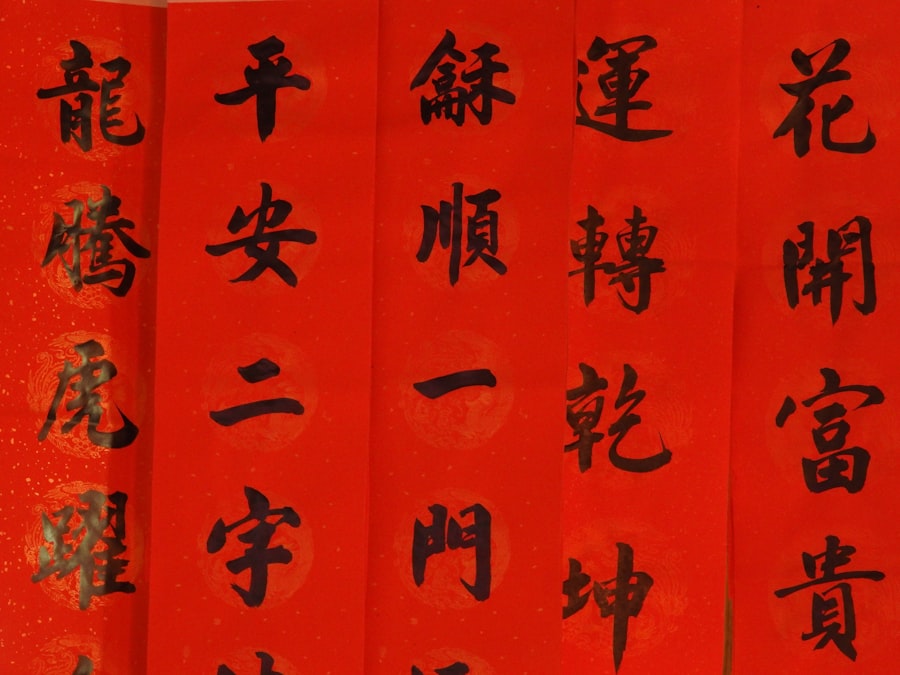 花開富貴
運轉乾坤
龢順一門
平安二字
龍騰虎躍